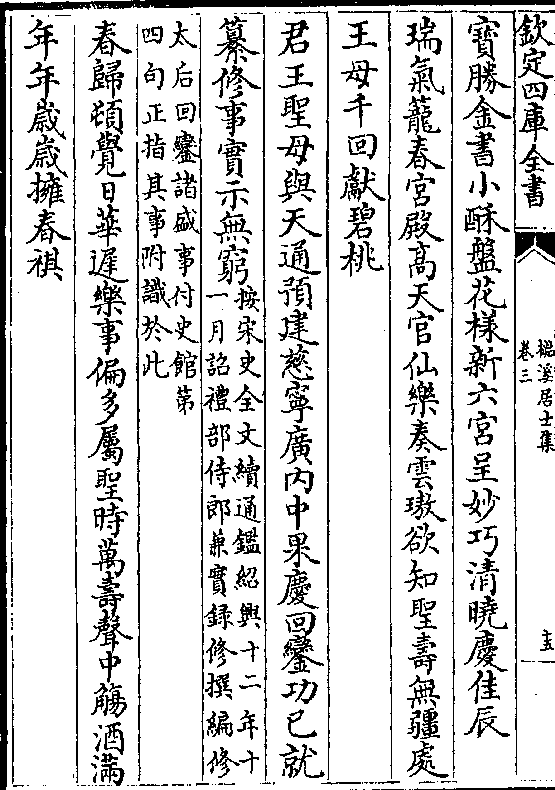 欽定四庫全書
榅溪居士集
卷三
十五
寳勝金書小酥盤花様新六宮呈妙巧清曉慶佳辰
瑞氣籠春宮殿髙天官仙樂奏雲璈欲知聖壽無疆處
王母千回獻碧桃
君王聖母與天通預建慈寧廣内中果慶回鑾功已就
纂修事實示無窮按宋史全文續通鑑紹興十二年十
一月詔禮部侍郎兼實録修撰編修
太后回鑾諸盛事付史館第
四句正指其事附識於此
春歸頓覺日華遲樂事偏多屬聖時萬壽聲中觴酒滿
年年嵗嵗擁春祺